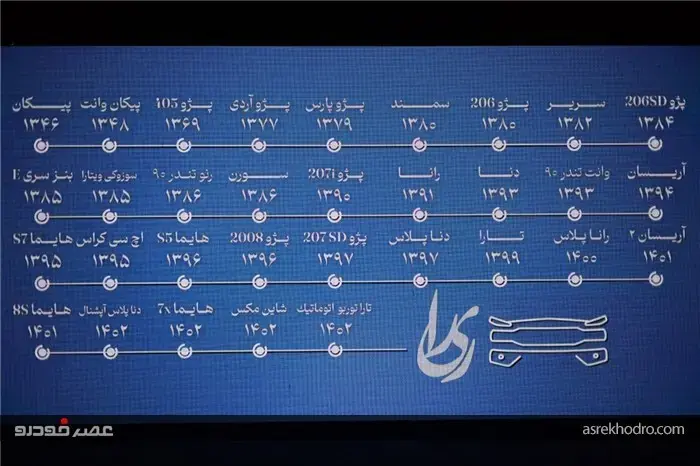 پیکان پیکان وانت پژو 405 پژو آردی پژو پارس سمند پژو 206 سریر پژو 206SD
۱۳۴۶ ۱۳۴۸ ۱۳۶۹ ۱۳۷۷ ۱۳۷۹ ۱۳۸۰ ۱۳۸۰ ۱۳۸۲ ۱۳۸۴
بنز سری E سوزوکی ویتارا رنو تندر ۹۰ سورن پژو 207i رانا دنا وانت تندر ۹۰ آریسان
۱۳۸۵ ۱۳۸۵ ۱۳۸۶ ۱۳۸۶ ۱۳۹۰ ۱۳۹۱ ۱۳۹۳ ۱۳۹۳ ۱۳۹۴
هایما S7 اچ سی کراس هایما S5 پژو 2008 پژو 207 SD دنا پلاس تارا رانا پلاس آریسان ۲
۱۳۹۵ ۱۳۹۵ ۱۳۹۶ ۱۳۹۶ ۱۳۹۷ ۱۳۹۷ ۱۳۹۹ ۱۴۰۰ ۱۴۰۱
هایما 8S دنا پلاس آپشنال هایما 7X شاین مکس تارا توربو اتوماتیک
۱۴۰۱ ۱۴۰۲ ۱۴۰۲ ۱۴۰۲ ۱۴۰۲
ری را
عصر خودرو
asrekhodro.com